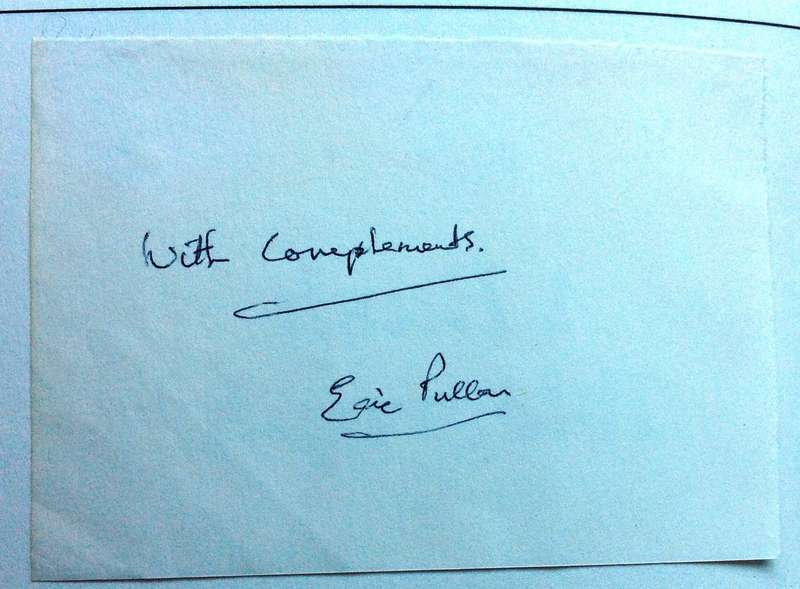 With Complements.
Eric Pullen